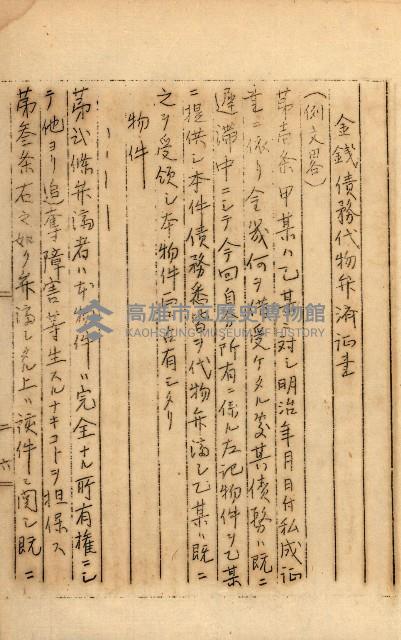 金錢債務代物弁済証書
(例文畧)
第壱条甲某ハ乙某ニ対シ明治年月日付私成証
書ニ依リ金幾何ヲ借受ケタル処其債務ハ既ニ
遅滞中ニシテ今回自分所有ニ係ル左記物件ヲ乙某
ニ提供シ本件債務悉皆ヲ代物弁済シ乙某ハ既ニ
之ヲ受領シ本物件ヲ占有シタリ
物件
第弐條弁済者ハ本物件ハ完全ナル所有権ニシ
テ他ヨリ追奪障害等生スルナキコトヲ担保ス
第叁条右之如ク弁済シタル上ハ該件ニ関シ既ニ
二六
高雄市立歷史博物館
KAOHSIUNG MUSEUM OF HISTORY